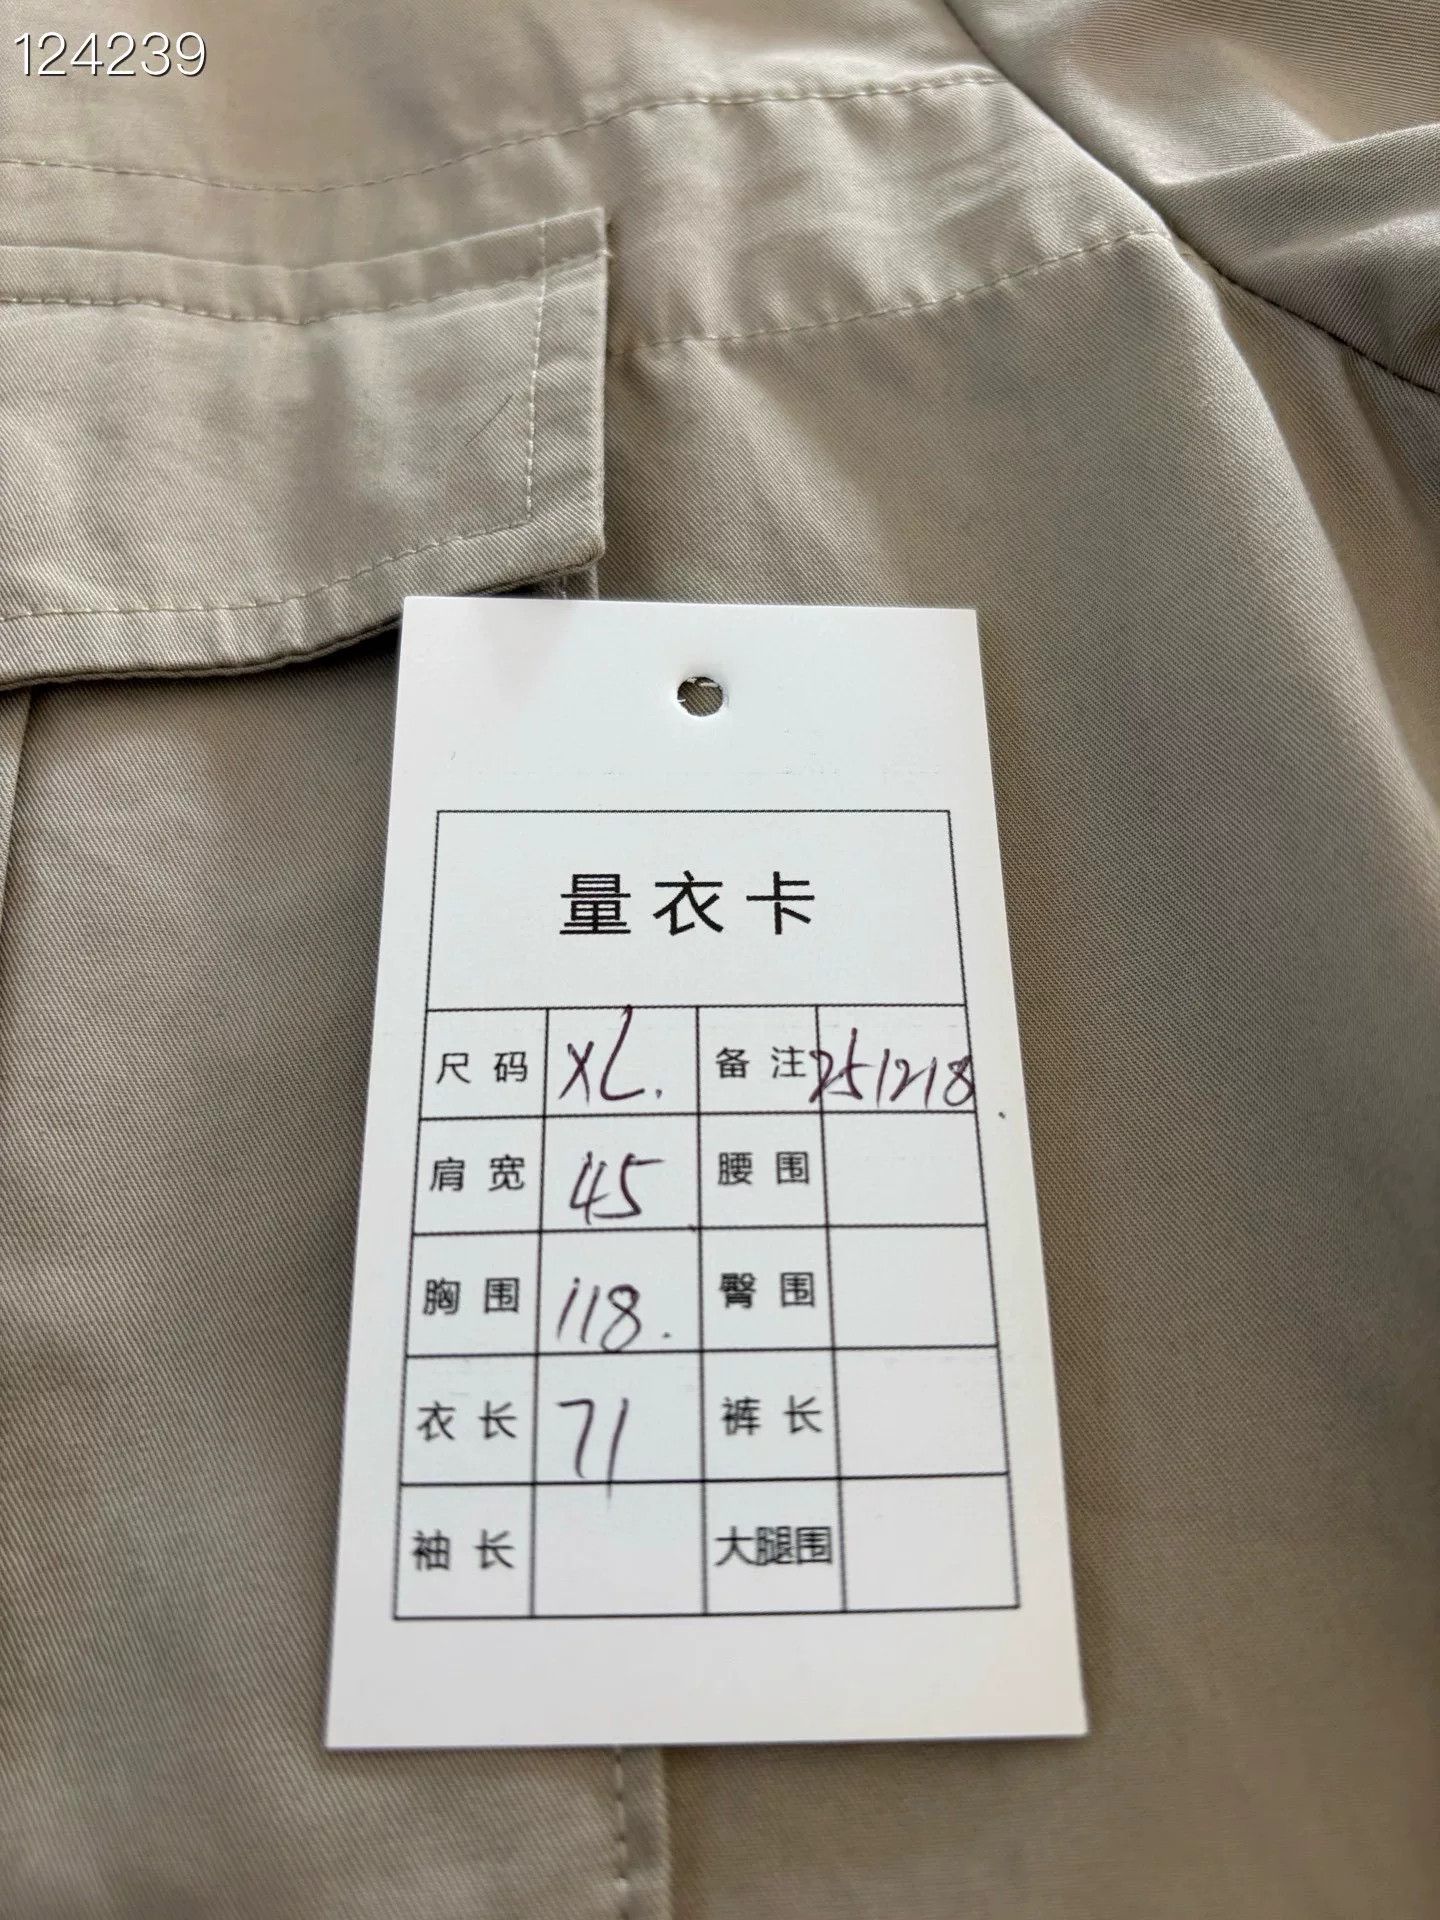 124239
量衣卡
尺码 XL. 备注 251218
肩宽 45 腰围
胸围 118. 臀围
衣长 71 裤长
袖长 大腿围